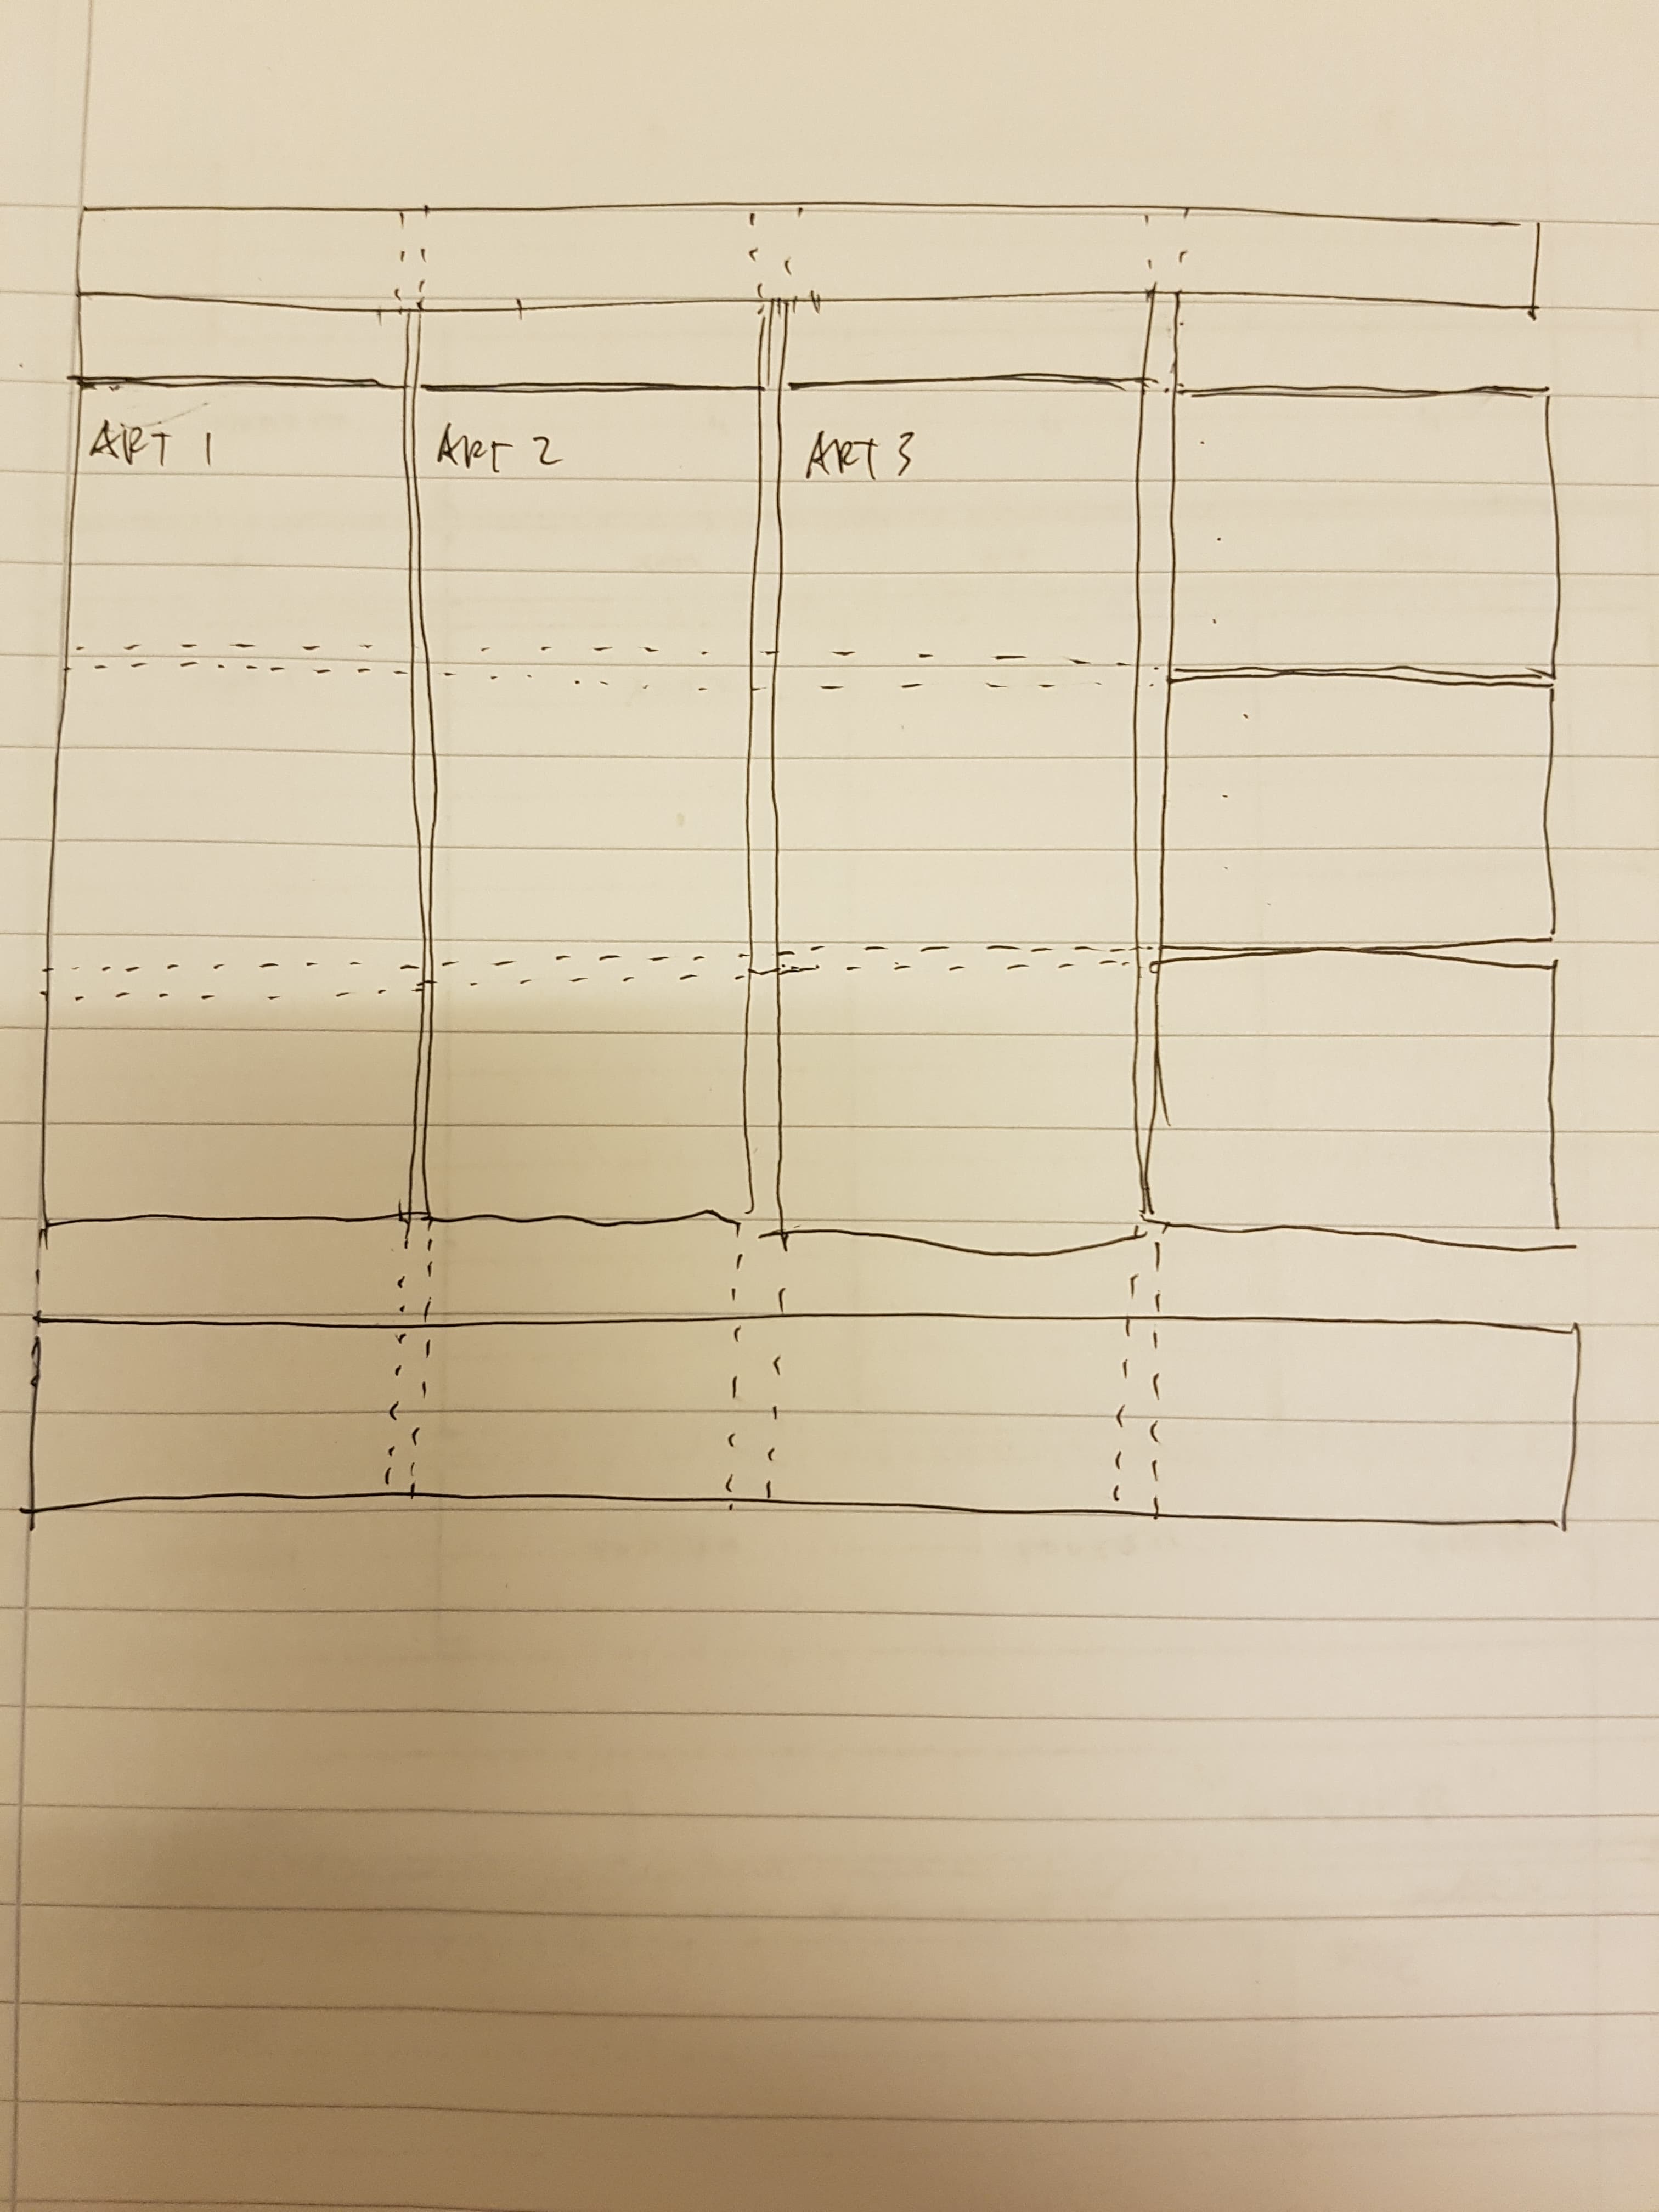 ART 1
ART 2
ART 3